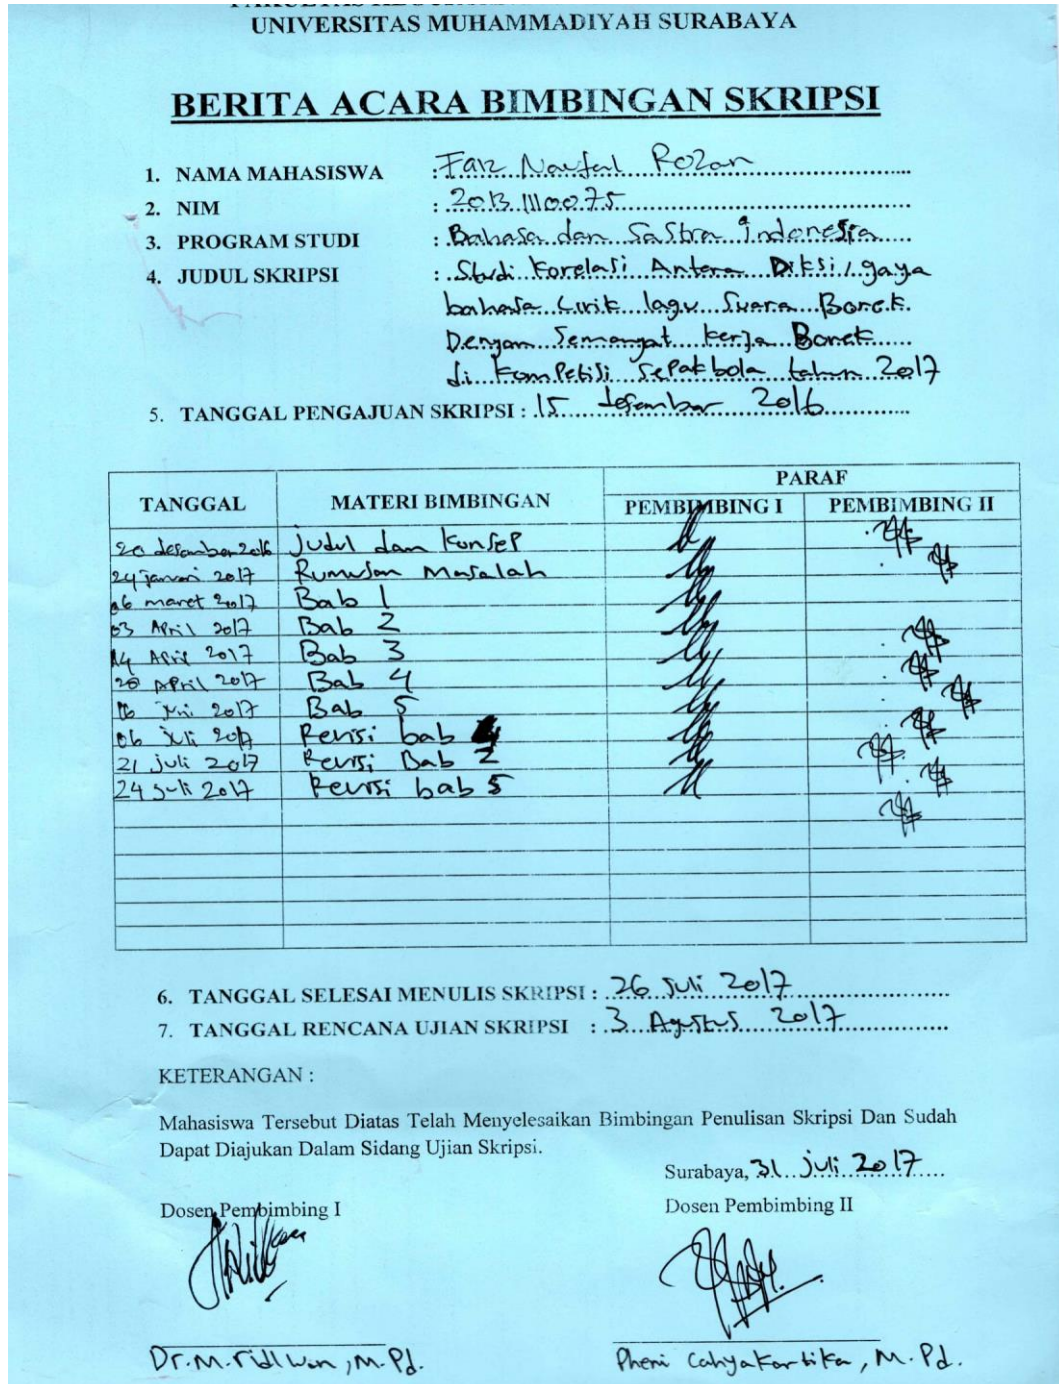 UNIVERSITAS MUHAMMADIYAH SURABAYA
BERITA ACARA BIMBINGAN SKRIPSI
1. NAMA MAHASISWA : Faiz Naufal Rozan
2. NIM : 20131110075
3. PROGRAM STUDI : Bahasa dan Sastra indonesia
4. JUDUL SKRIPSI : Studi Korelasi Antara Diksi, gaya
bahasa Lirik lagu Suara Bonek
Dengan Semangat kerja Bonek
di Kompetisi Sepakbola tahun 2017
5. TANGGAL PENGAJUAN SKRIPSI : 15 desember 2016
TANGGAL MATERI BIMBINGAN PARAF
PEMBIMBING I PEMBIMBING II
20 desember 2016 judul dan konsep
24 januari 2017 Rumusan Masalah
06 maret 2017 Bab 1
03 April 2017 Bab 2
14 April 2017 Bab 3
20 April 2017 Bab 4
16 juni 2017 Bab 5
06 juli 2017 Revisi bab 4
21 juli 2017 Revisi Bab 2
24 juli 2017 Revisi bab 5
6. TANGGAL SELESAI MENULIS SKRIPSI : 26 juli 2017
7. TANGGAL RENCANA UJIAN SKRIPSI : 3 Agustus 2017
KETERANGAN :
Mahasiswa Tersebut Diatas Telah Menyelesaikan Bimbingan Penulisan Skripsi Dan Sudah
Dapat Diajukan Dalam Sidang Ujian Skripsi.
Surabaya, 31 juli 2017
Dosen Pembimbing I Dosen Pembimbing II
Dr. M. ridlwan, M.Pd. Pheni Cahyakartika, M.Pd.